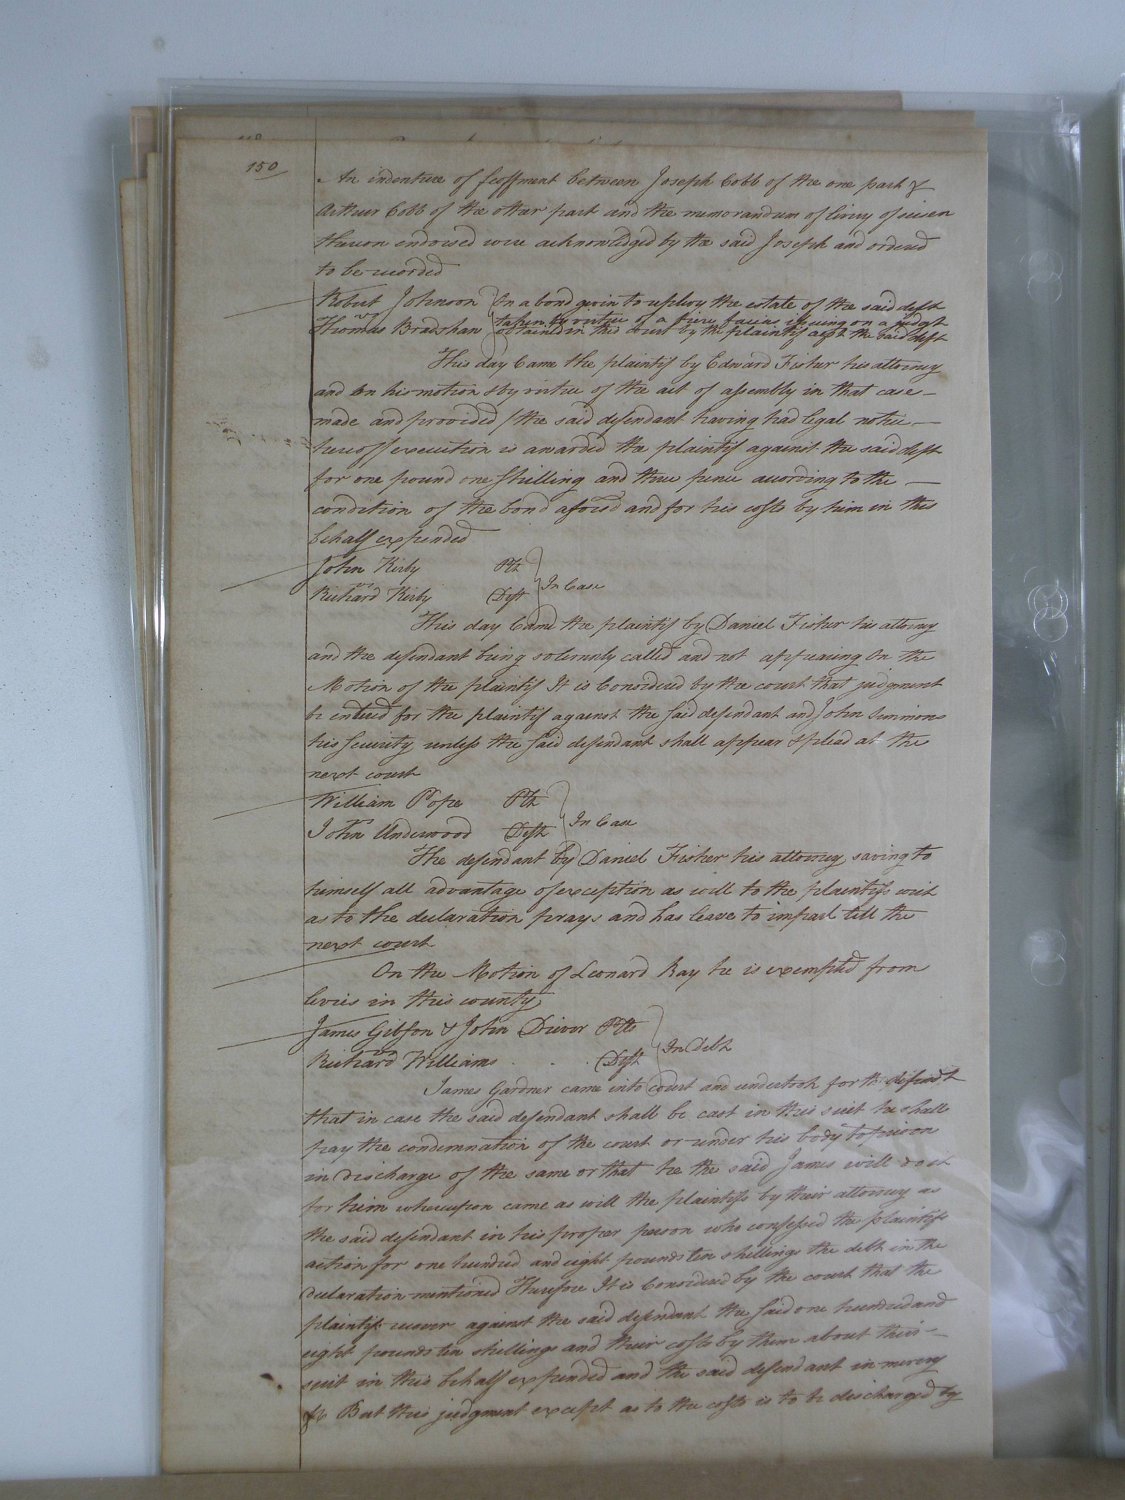 150
An indenture of feoffment between Joseph Cobb of the one part &
Arthur Cobb of the other part and the memorandum of livery of seisen
thereon endorsed were acknowledged by the said Joseph and ordered
to be recorded
Robert Johnson } On a bond given to replevy the estate of the said deft
vs
Thomas Bradshaw taken by virtue of a fieri facias issuing on a judgt
obtained in this court by the plaintif agst the said deft
This day Came the plaintif by Edward Fisher his attorney
and on his motion & by virtue of the act of assembly in that case
made and provided / the said defendant having had legal notice
hereof / execution is awarded the plaintif against the said deft
for one pound one shilling and three pence according to the
condition of the bond aforesd and for his costs by him in this
behalf expended
John Kirby Plt }
vs In Case
Richard Kirby Deft
This day Came the plaintif by Daniel Fisher his attorney
and the defendant being solemnly called and not appearing On the
Motion of the plaintif It is Considered by the court that judgment
be entered for the plaintif against the said defendant and John Simmons
his security unless the said defendant shall appear & plead at the
next court
William Pope Plt }
vs In Case
John Underwood Deft
The defendant by Daniel Fisher his attorney saving to
himself all advantage of exception as well to the plaintifs writ
as to the declaration prays and has leave to imparl till the
next court
On the Motion of Leonard Ray he is exempted from
levies in this county
James Gibson & John Driver Plts }
vs In Debt
Richard Williams Deft
James Gardner came into court and undertook for the defendt
that in case the said defendant shall be cast in this suit he shall
pay the condemnation of the court or render his body to prison
in discharge of the same or that he the said James will do it
for him whereupon came as well the plaintifs by their attorney as
the said defendant in his proper person who confessed the plaintifs
action for one hundred and eight pounds ten shillings the debt in the
declaration mentioned Therefore It is Considered by the court that the
plaintifs recover against the said defendant the said one hundred and
eight pounds ten shillings and their costs by them about their
suit in this behalf expended and the said defendant in mercy
&c But this judgment except as to the costs is to be discharged by